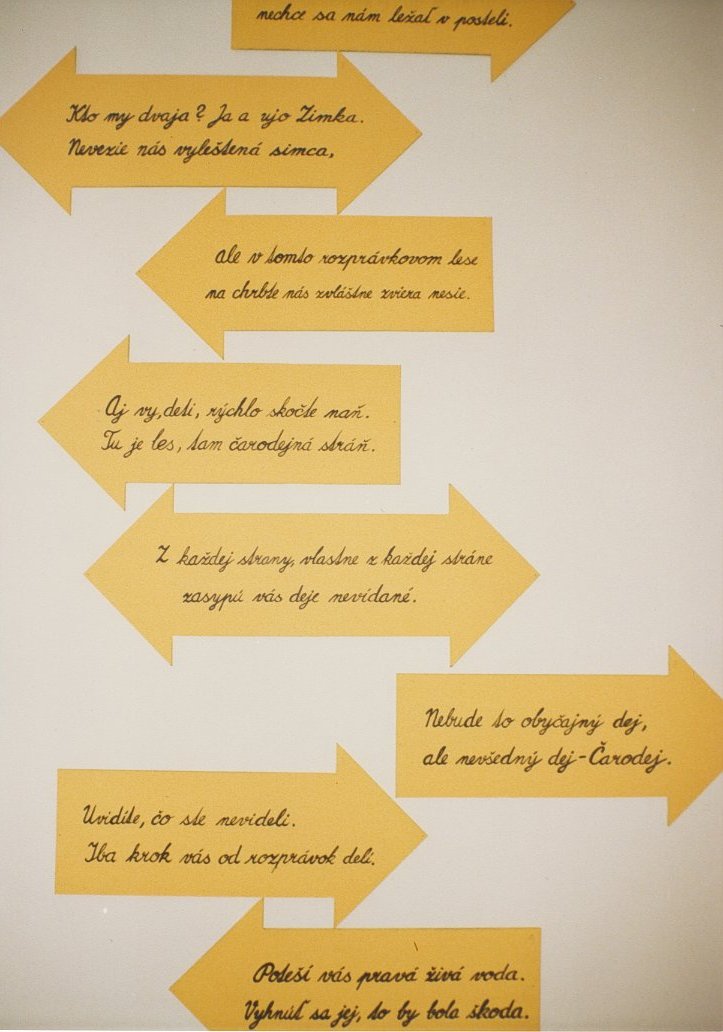 nechce sa nám ležať v posteli.
Kto my dvaja? Ja a ujo Zimka.
Nevezie nás vyleštená simca,
ale v tomto rozprávkovom lese
na chrbte nás zvláštne zviera nesie.
Aj vy, deti, rýchlo skočte naň.
Tu je les, tam čarodejná stráň.
Z každej strany, vlastne z každej stráne
zasypú vás deje nevídané.
Nebude to obyčajný dej,
ale nevšedný dej-Čarodej.
Uvidíte, čo ste nevideli.
Iba krok vás od rozprávok delí.
Poteší vás pravá živá voda.
Vyhnúť sa jej, to by bola škoda.